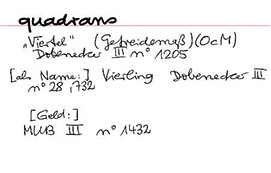 quadrans
"Viertel" (Getreidemaß) (OcM)
Dobenecker III n° 1205
[als Name:] Vierling Dobenecker III
n° 28, 732
[Geld:]
MUB III n° 1432